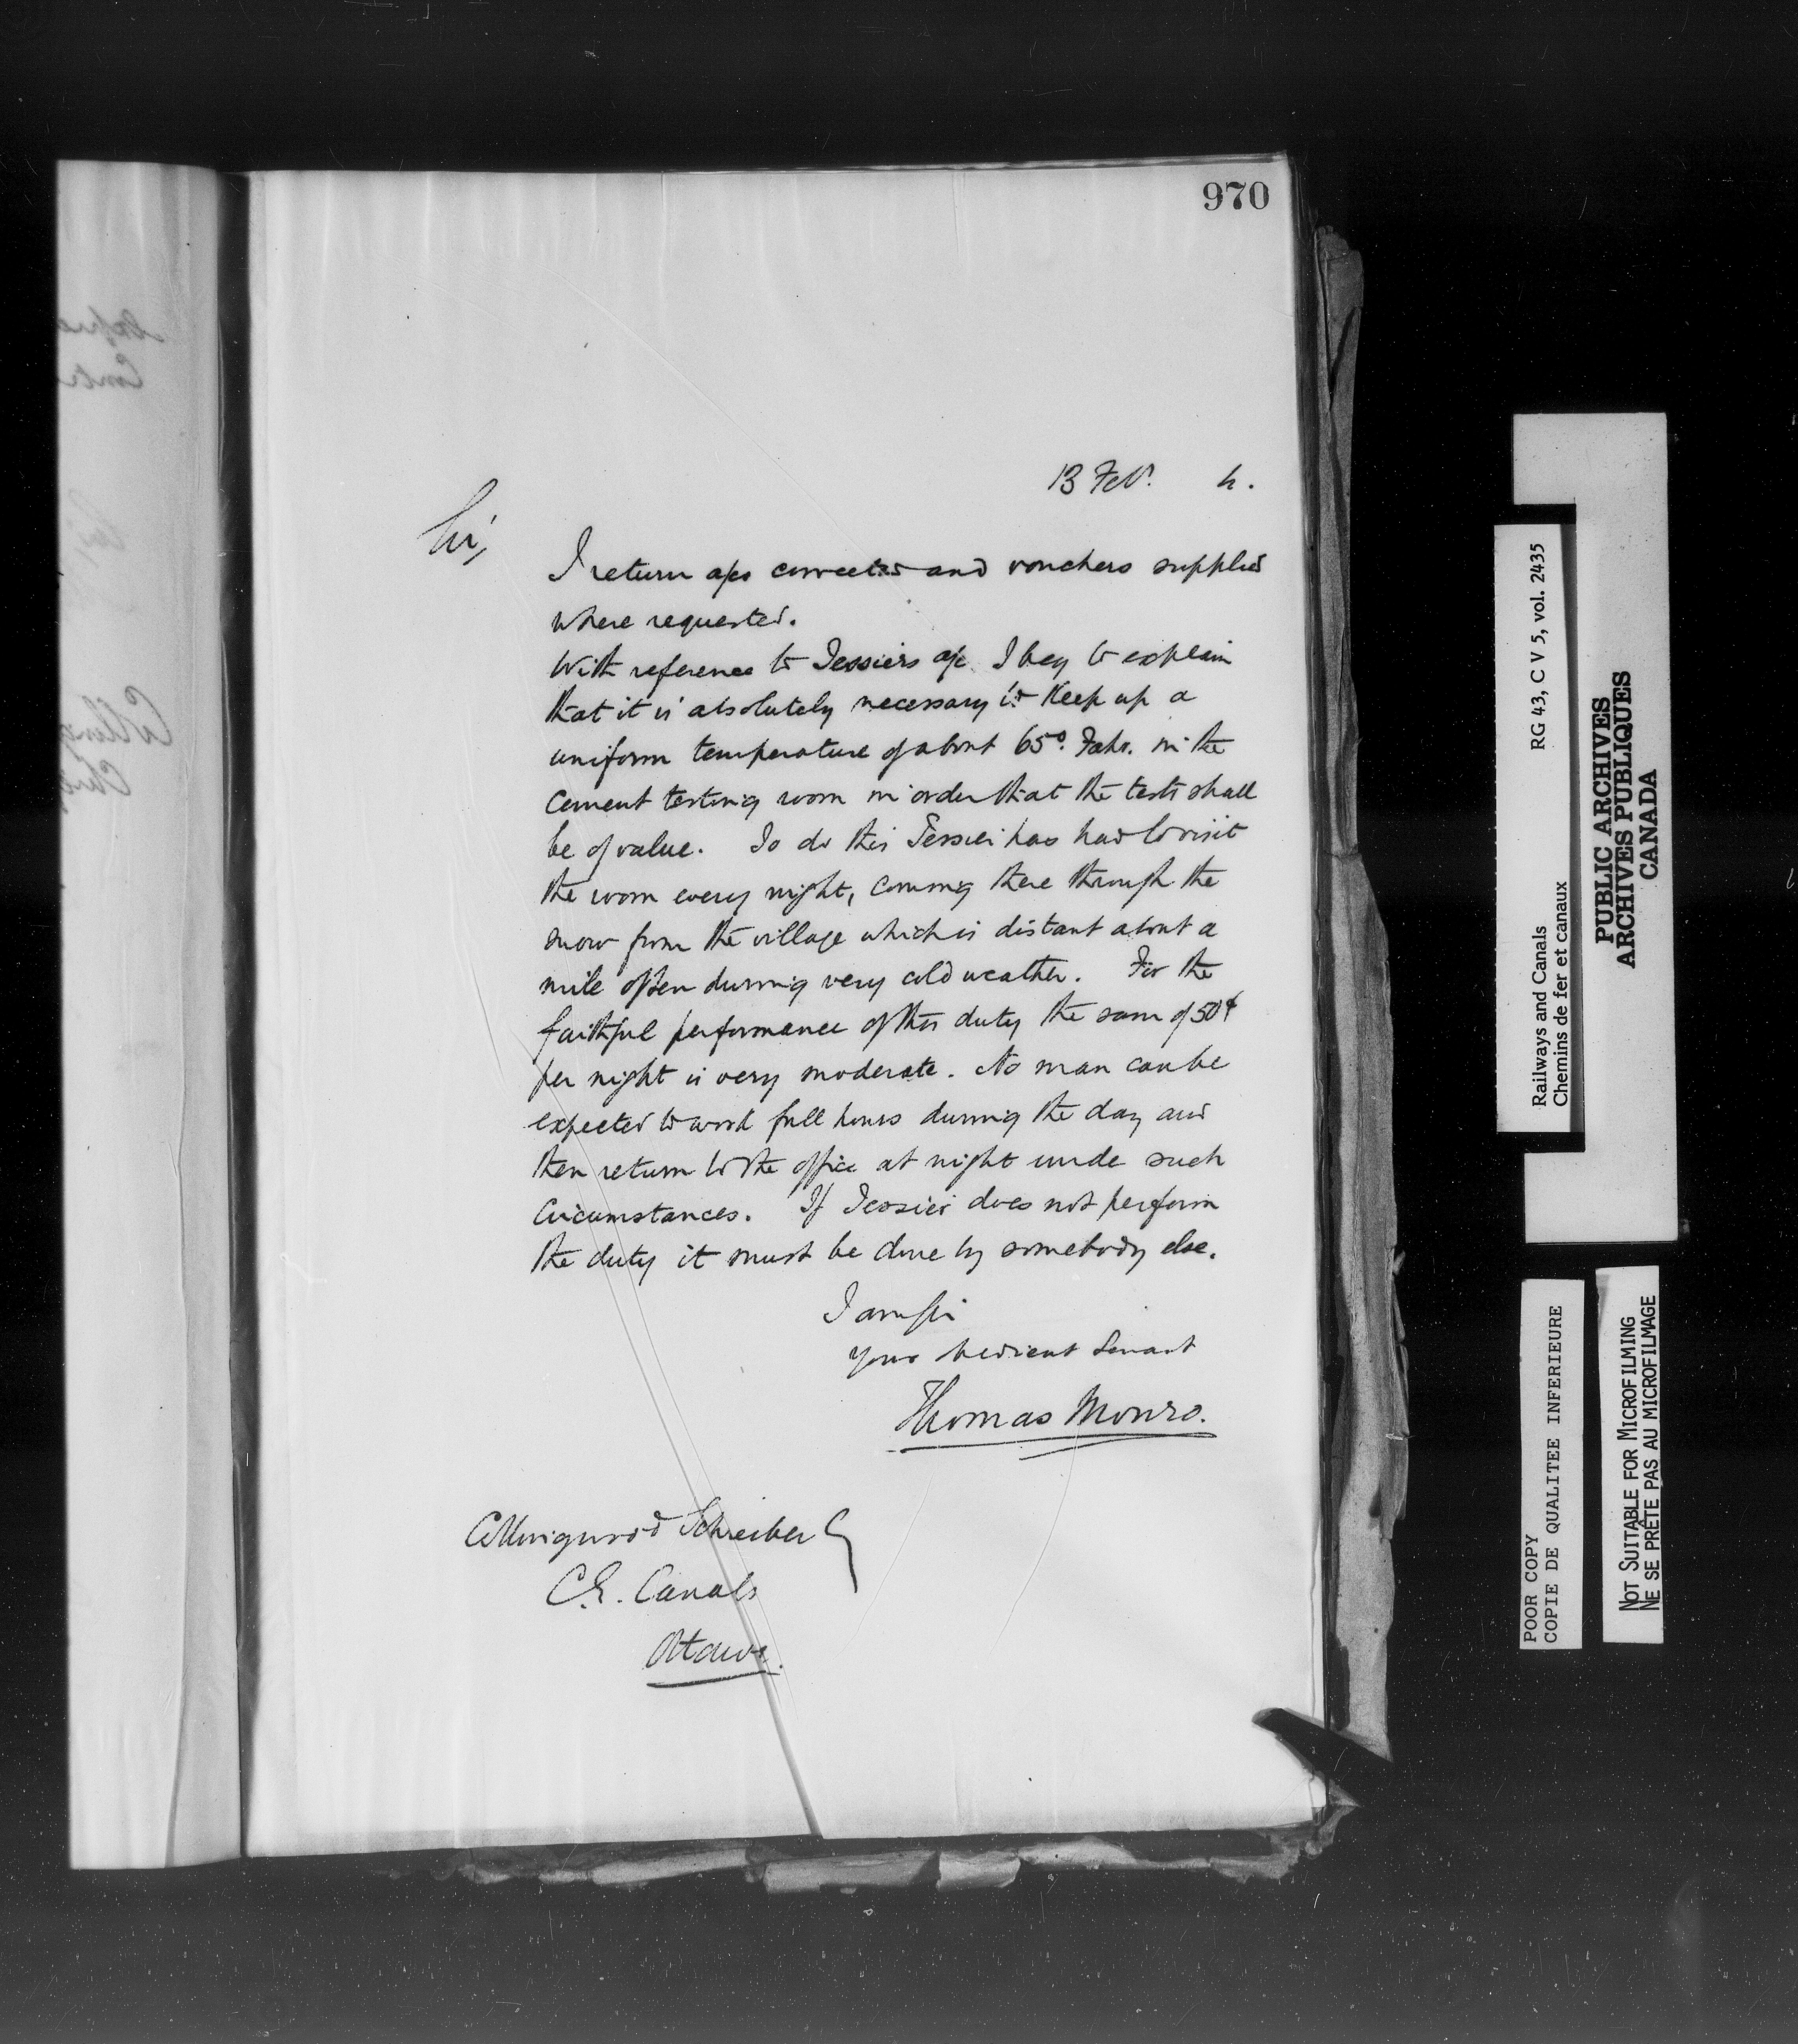 970
13 Feby. 4.
Sir,
I return a/cs corrected and vouchers supplied
where requested.
With reference to Tessiers a/c I beg to explain
that it is absolutely necessary to keep up a
uniform temperature of about 65º. Fahr. in the
cement testing room in order that the tests shall
be of value. To do this Tessier has had to visit
the room every night, coming there through the
snow from the village which is distant about a
mile often during very cold weather. For the
faithful performance of this duty the sum of 50¢
per night is very moderate. No man can be
expected to work full hours during the day and
then return to the office at night under such
Circumstances. If Tessier does not perform
the duty it must be done by somebody else.
I am Sir
Your obedient Servant
Thomas Monro.
Collingwood Schreiber
C.E. Canals
Ottawa.
Railways and Canals RG 43, C V 5, vol. 2435
Chemins de fer et canaux
PUBLIC ARCHIVES
ARCHIVES PUBLIQUES
CANADA
POOR COPY
COPIE DE QUALITEE INFERIEURE
NOT SUITABLE FOR MICROFILMING
NE SE PRÊTE PAS AU MICROFILMAGE